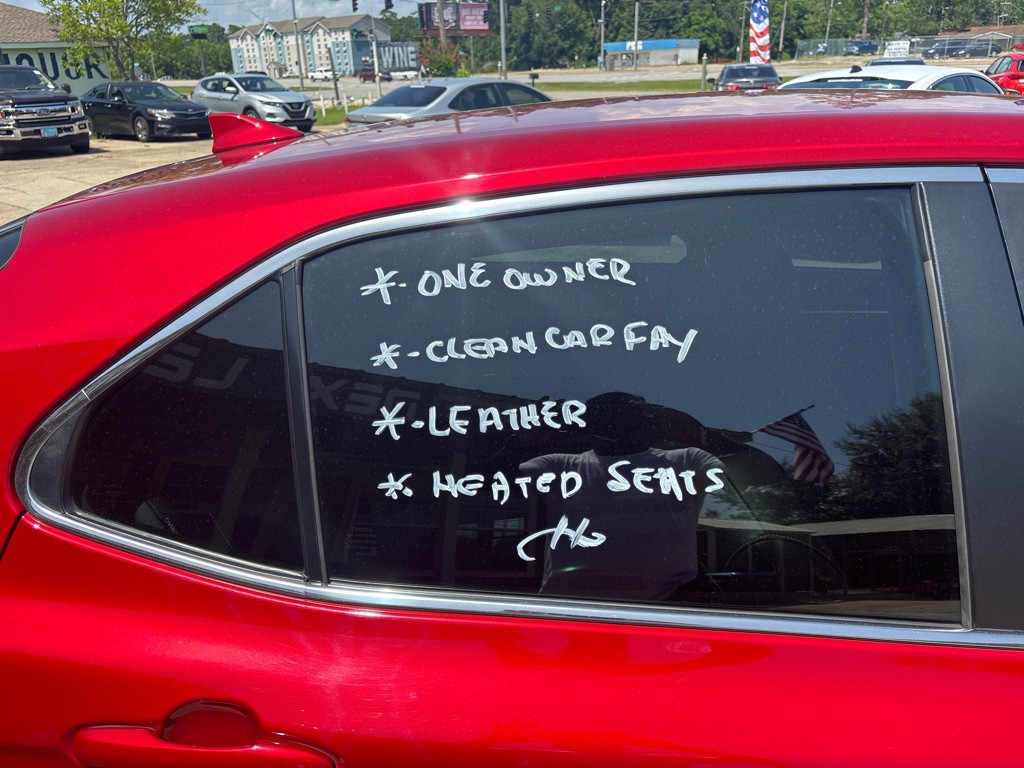 WINE
*- ONE OWNER
*- CLEAN CAR FAY
*- LEATHER
*- HEATED SEATS